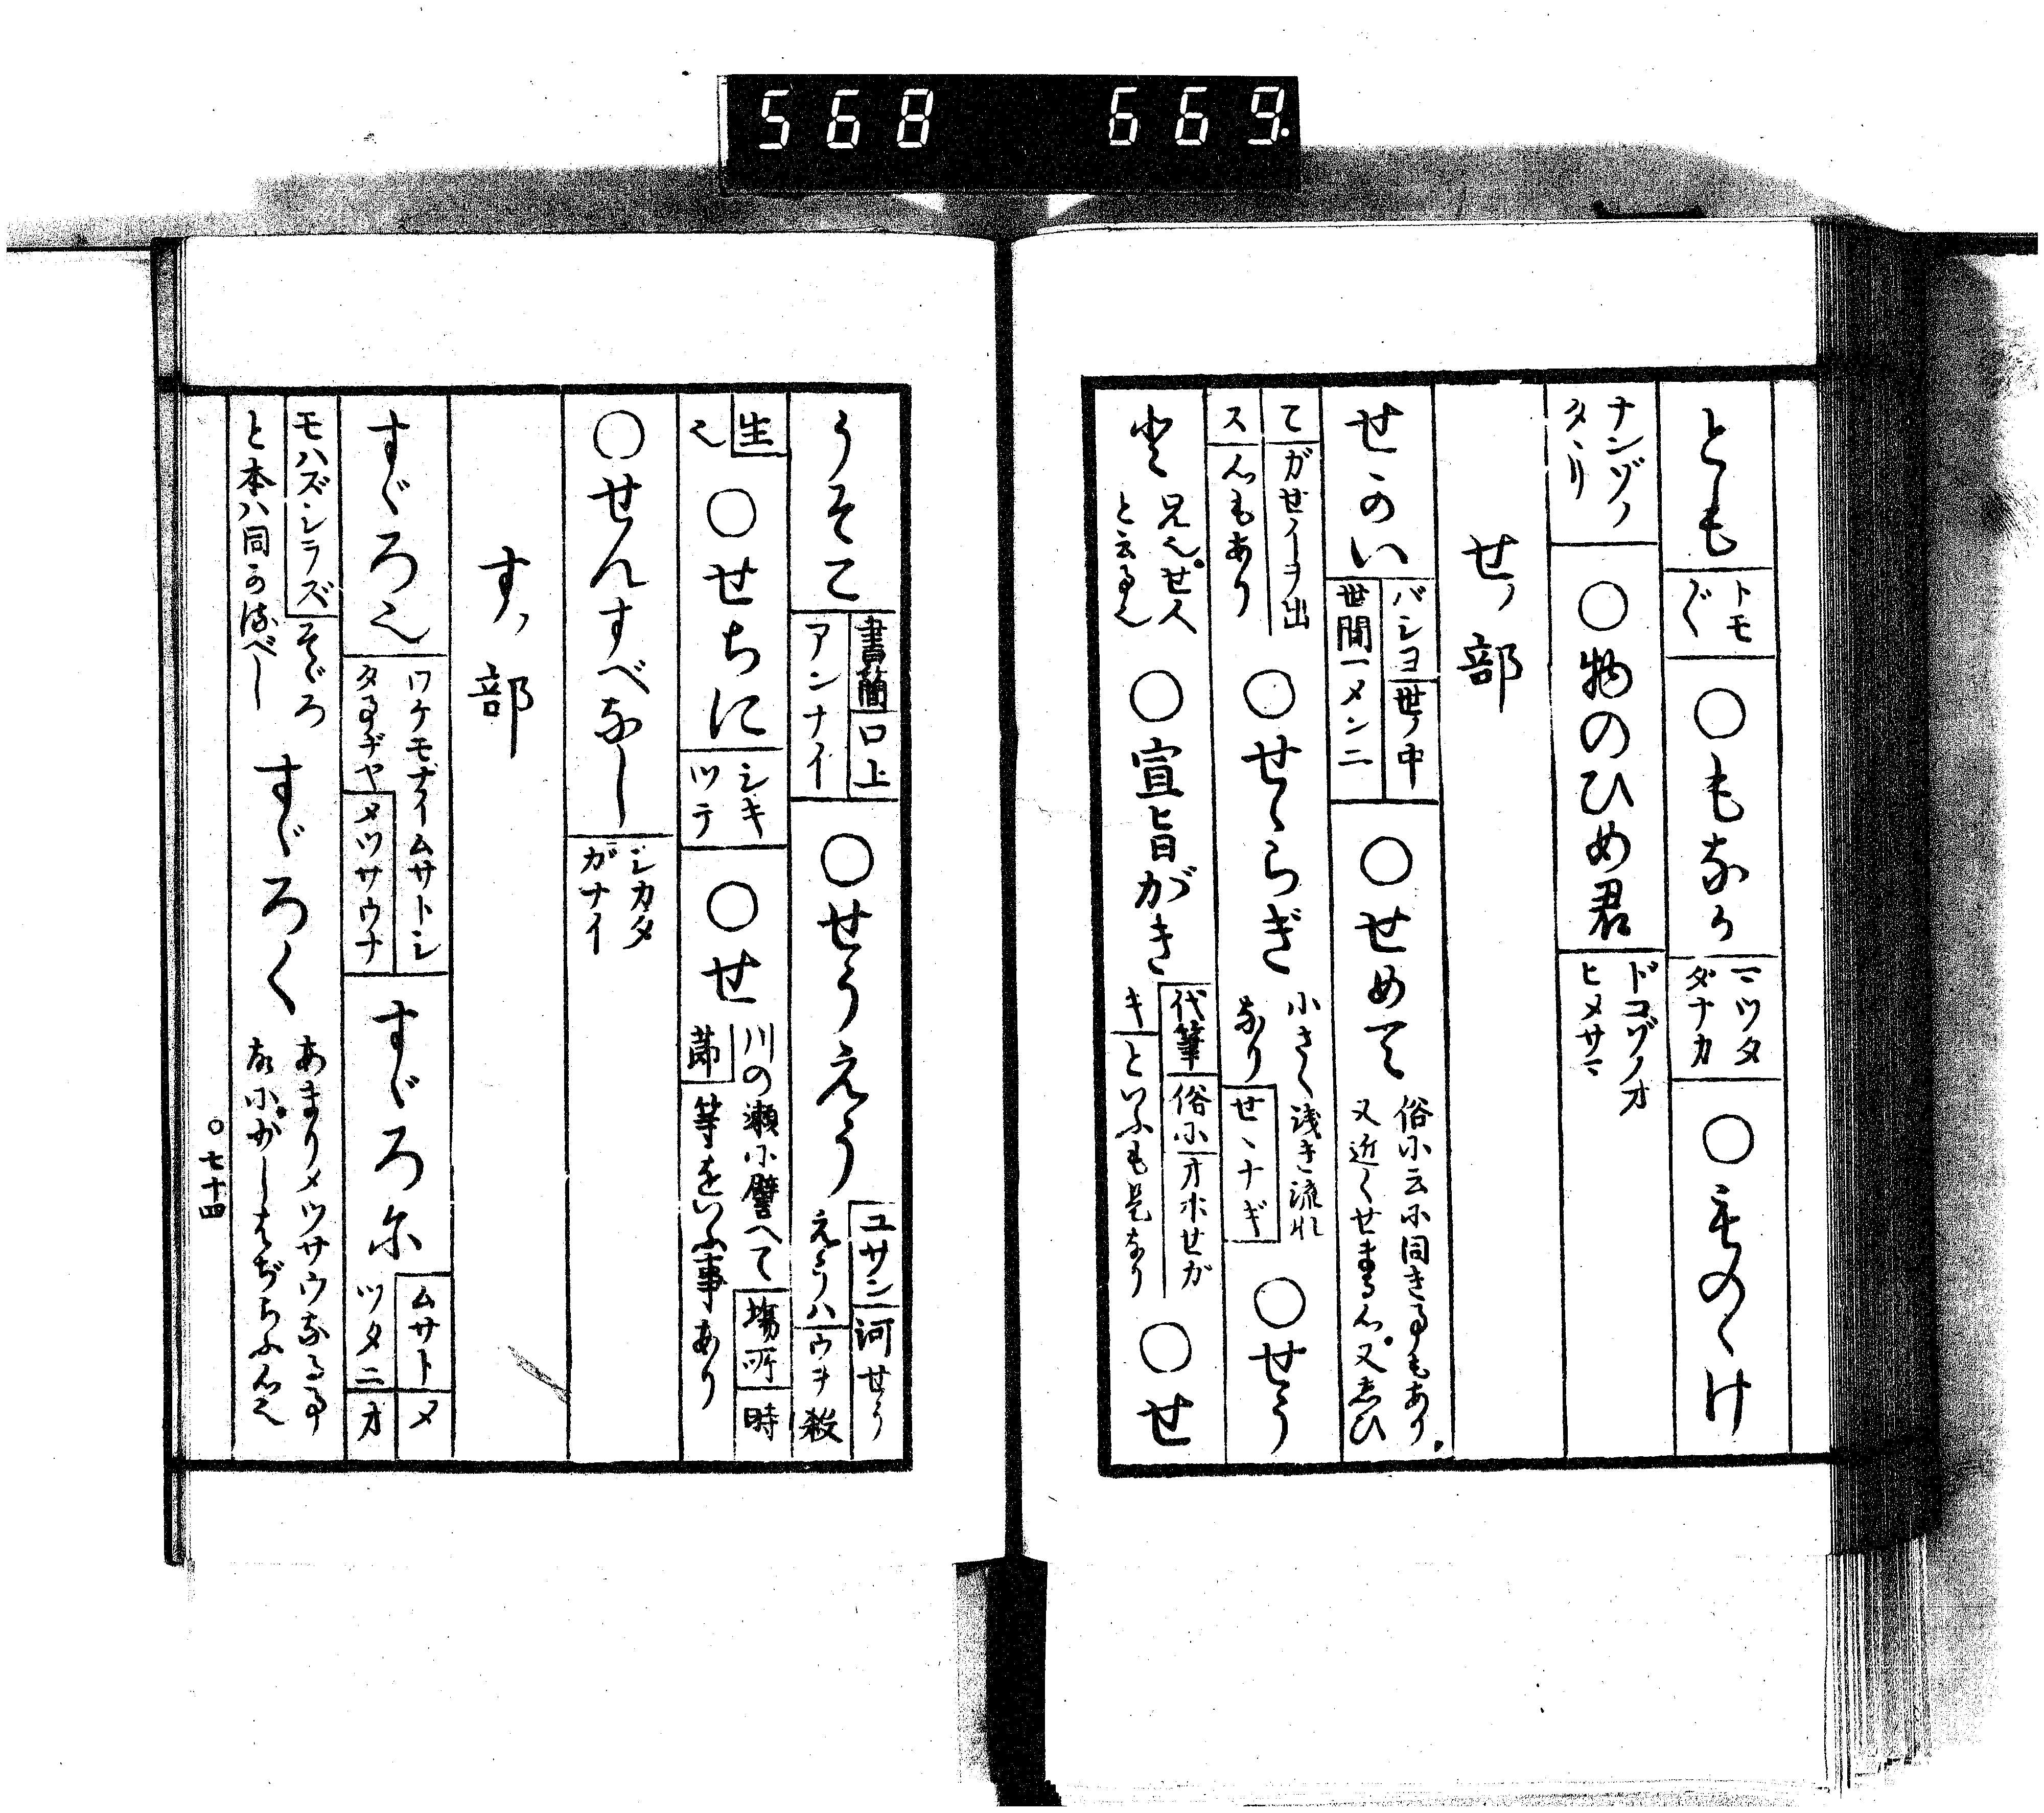 568 669.
とも トモ〴〵 ○もなか マツタダナカ ○ものゝけ
ナンゾノタヽリ ○物のひめ君 ドコゾノオヒメサマ
せノ部
せかい バシヨ 世ノ中 世間一メン二 ○せめて 俗に云に同き事もあり。又近くせまる心。又しひ
て ガセイヲ出ス 心もあり ○せゝらぎ 小さく浅き流れなり せヽナギ ○せう
と 兄也。せ人と云事也 ○宣旨がき 代筆 俗にオホせガキ といふも是なり ○せ
うそこ 書簡 口上 アンナイ ○せうえう ユサン 河せうえうハ ウヲ殺
生 也 ○せちに シキツテ ○せ 川の瀬に譬へて 場所 時節 等をいふ事あり
○せんすべなし シカタガナイ
すノ部
すゞろ也 ワケモナイ ムサトシタ事ヂヤ メツサウナ すゞろに ムサト メツタニ オ
モハズシラズ そゞろと本ハ同かるべし すゞろく あまりメツサウなる事
○七十四